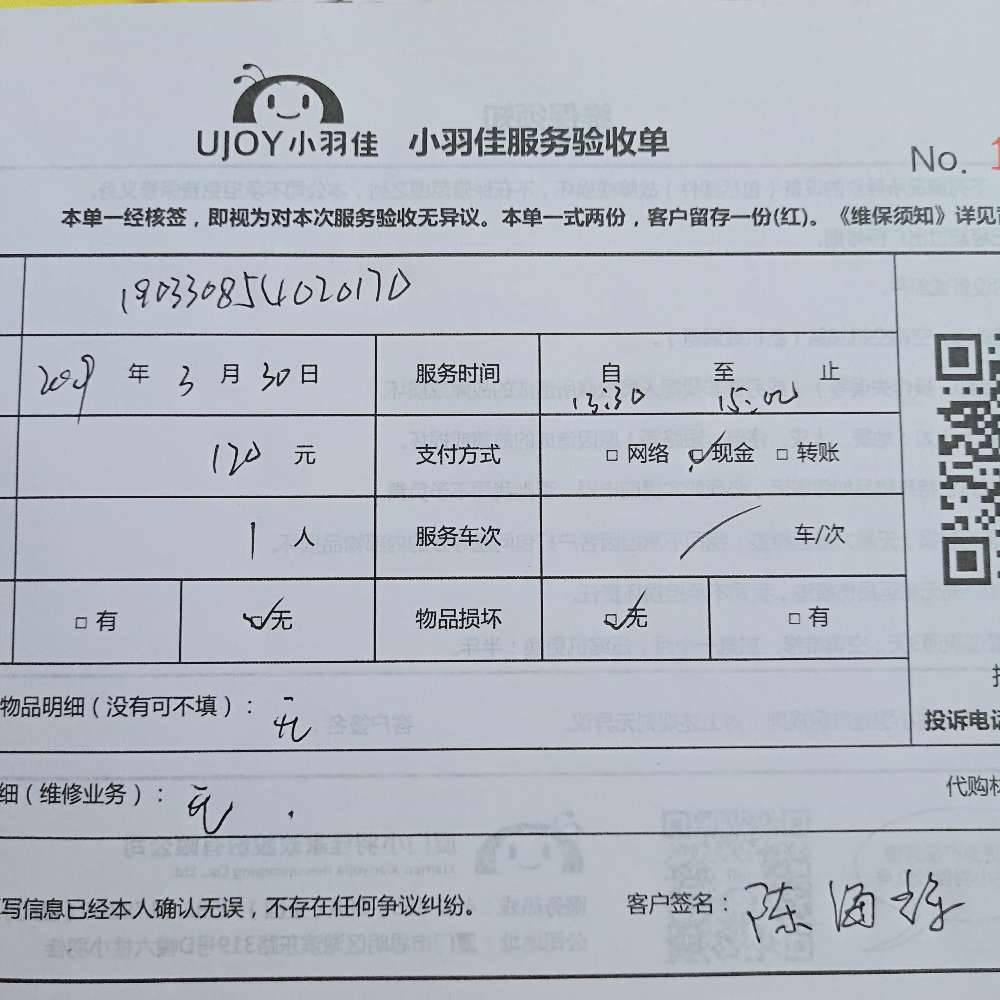 UJOY小羽佳 小羽佳服务验收单
No. 1
本单一经核签，即视为对本次服务验收无异议。本单一式两份，客户留存一份(红)。《维保须知》详见
190330854020170
2019 年 3 月 30 日 服务时间 自 13:30 至 15:00 止
120 元 支付方式 □ 网络 ☑ 现金 □ 转账
1 人 服务车次 / 车/次
□ 有 ☑ 无 物品损坏 ☑ 无 □ 有
物品明细（没有可不填）： 无
投诉电话
细（维修业务）： 无.
代购材
写信息已经本人确认无误，不存在任何争议纠纷。 客户签名：陈